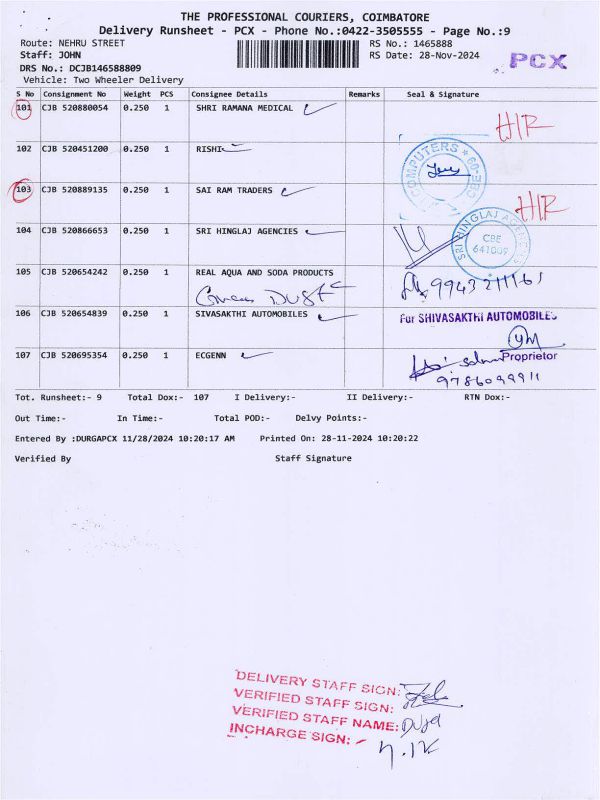 THE PROFESSIONAL COURIERS, COIMBATORE
Delivery Runsheet - PCX - Phone No.:0422-3505555 - Page No.:9
Route: NEHRU STREET RS No.: 1465888
Staff: JOHN RS Date: 28-Nov-2024 PCX
DRS No.: DCJB146588809
Vehicle: Two Wheeler Delivery
S No Consignment No Weight PCS Consignee Details Remarks Seal & Signature
101 CJB 520880054 0.250 1 SHRI RAMANA MEDICAL
HIR
102 CJB 520451200 0.250 1 RISHI
COMPUTERS CBE
103 CJB 520889135 0.250 1 SAI RAM TRADERS
HIR
104 CJB 520866653 0.250 1 SRI HINGLAJ AGENCIES
SRI HINGLAJ AGENCIES CBE 641009
105 CJB 520654242 0.250 1 REAL AQUA AND SODA PRODUCTS
9943211161
106 CJB 520654839 0.250 1 SIVASAKTHI AUTOMOBILES
For SHIVASAKTHI AUTOMOBILES
Proprietor
107 CJB 520695354 0.250 1 ECGENN
9786099911
Tot. Runsheet:- 9 Total Dox:- 107 I Delivery:- II Delivery:- RTN Dox:-
Out Time:- In Time:- Total POD:- Delvy Points:-
Entered By :DURGAPCX 11/28/2024 10:20:17 AM Printed On: 28-11-2024 10:20:22
Verified By Staff Signature
DELIVERY STAFF SIGN:
VERIFIED STAFF SIGN:
VERIFIED STAFF NAME:
INCHARGE SIGN: